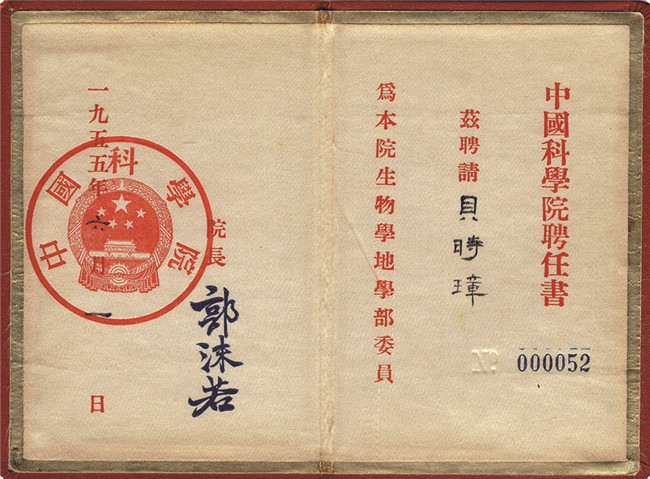 中國科學院聘任書
茲聘請貝時璋
爲本院生物學地學部委員
000052
院長
郭沫若
中國科學院
一九五五年六月一日